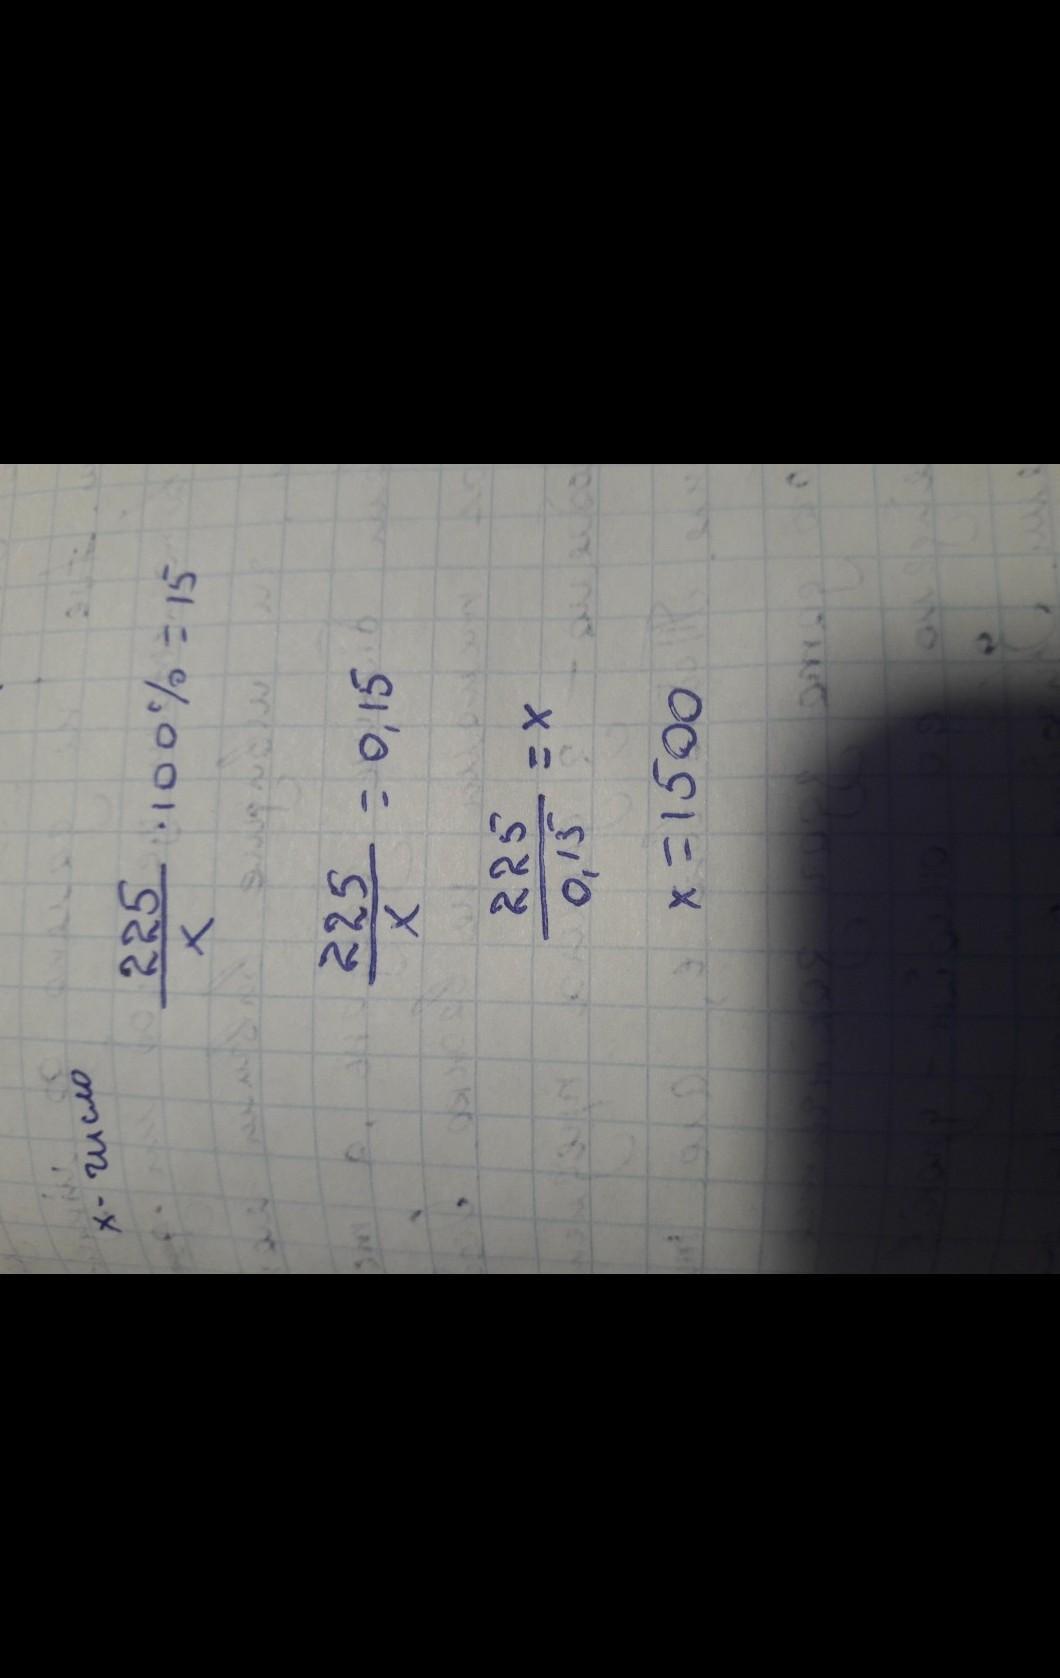 x - число
225/x · 100% = 15
225/x = 0,15
225/0,15 = x
x = 1500